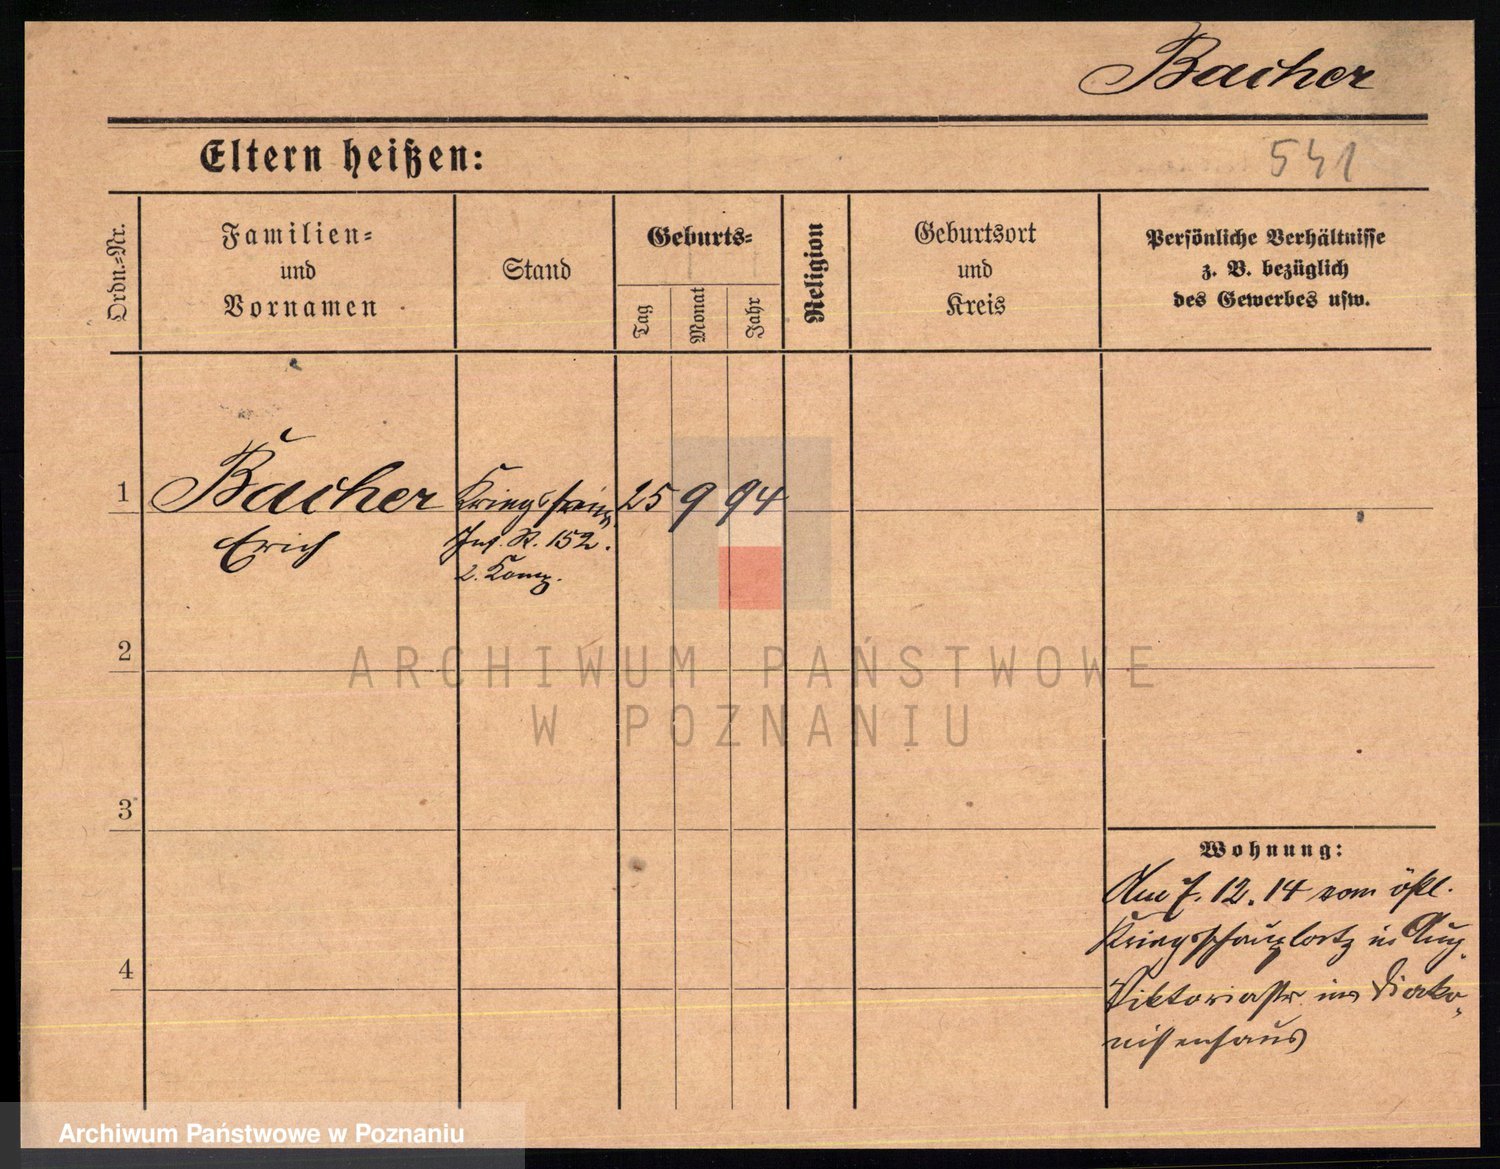 Bacher
Eltern heißen:
541
Ordn.-Nr.
Familien-
und
Vornamen
Stand
Geburts-
Tag
Monat
Jahr
Religion
Geburtsort
und
Kreis
Persönliche Verhältnisse
z. B. bezüglich
des Gewerbes usw.
1
Bacher
Erich
Kriegsfreiw.
Inf. R. 152.
2. Komp.
25
9
94
2
ARCHIWUM PAŃSTWOWE
W POZNANIU
3
4
Wohnung:
Am 7. 12. 14 vom östl.
Kriegsschauplatz in Aug.
Viktoriastr ins Diako-
nissenhaus
Archiwum Państwowe w Poznaniu